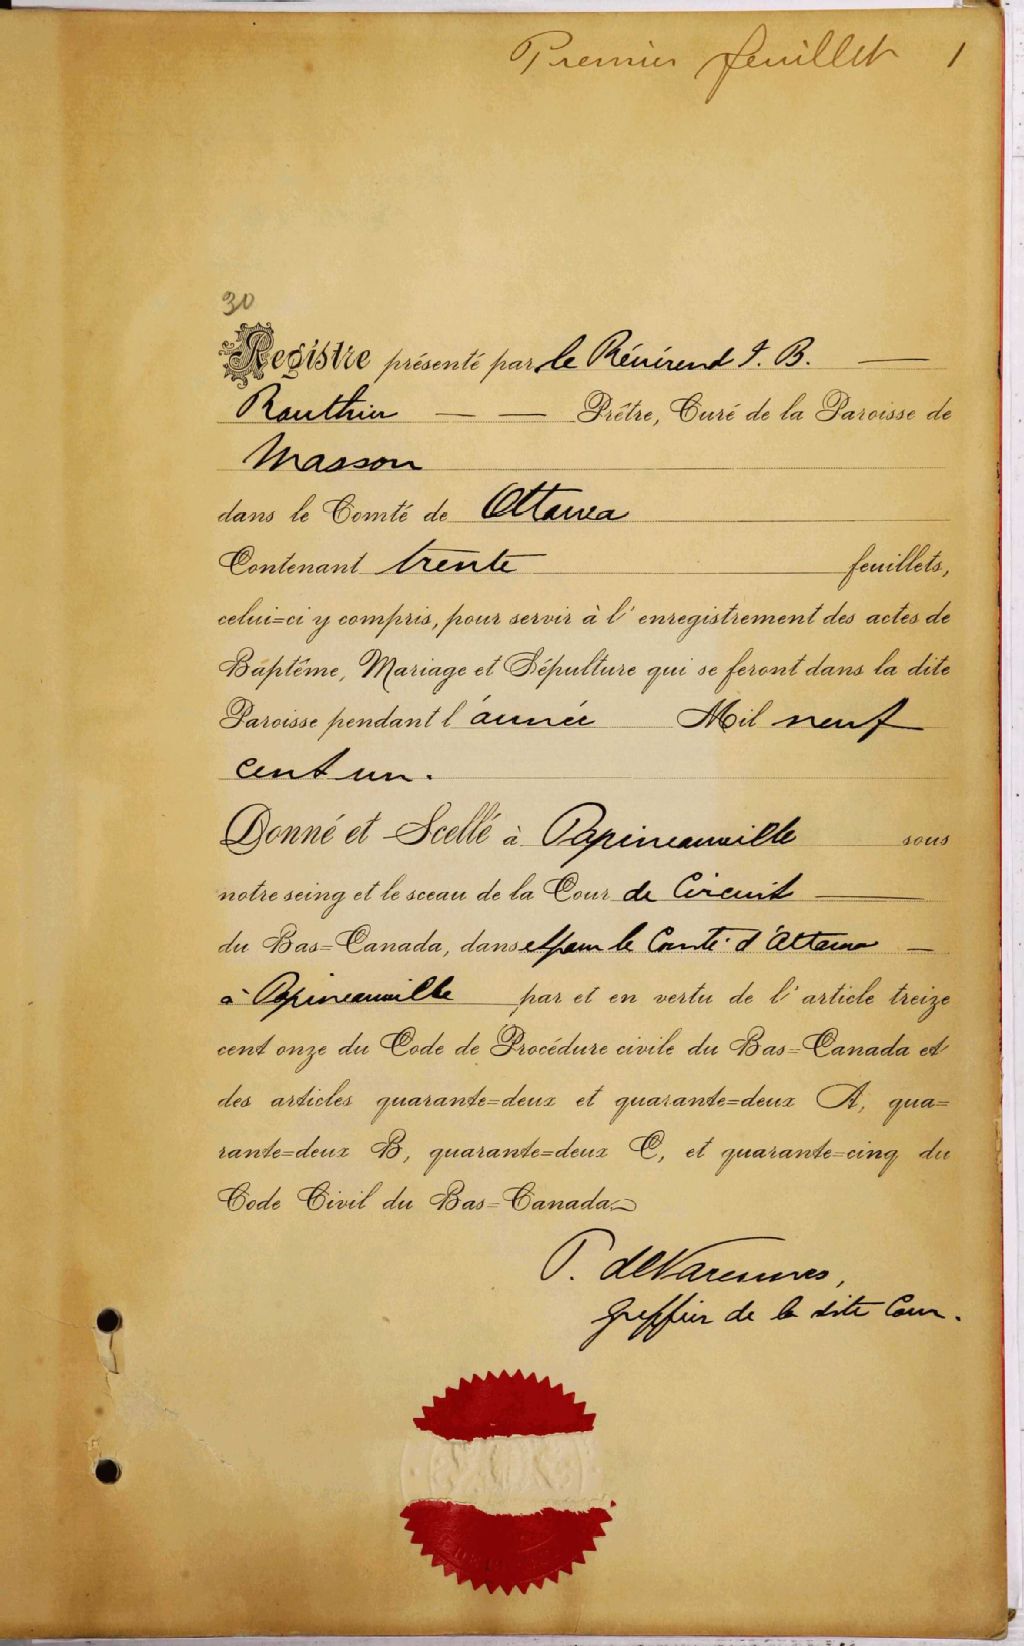 Premier feuillet 1
30
Registre présenté par le Révérend J. B.
Routhier Prêtre, Curé de la Paroisse de
Masson
dans le Comté de Ottawa
Contenant trente feuillets,
celui=ci y compris, pour servir à l'enregistrement des actes de
Baptême, Mariage et Sépulture qui se feront dans la dite
Paroisse pendant l'année Mil neuf
cent un.
Donné et Scellé à Papineauville sous
notre seing et le sceau de la Cour de Circuit
du Bas=Canada, dans et pour le Comté d'Ottawa
à Papineauville par et en vertu de l'article treize
cent onze du Code de Procédure civile du Bas=Canada et
des articles quarante=deux et quarante=deux A, qua=
rante=deux B, quarante=deux C, et quarante=cinq du
Code Civil du Bas=Canada.
P. deVarennes,
Greffier de la dite Cour.